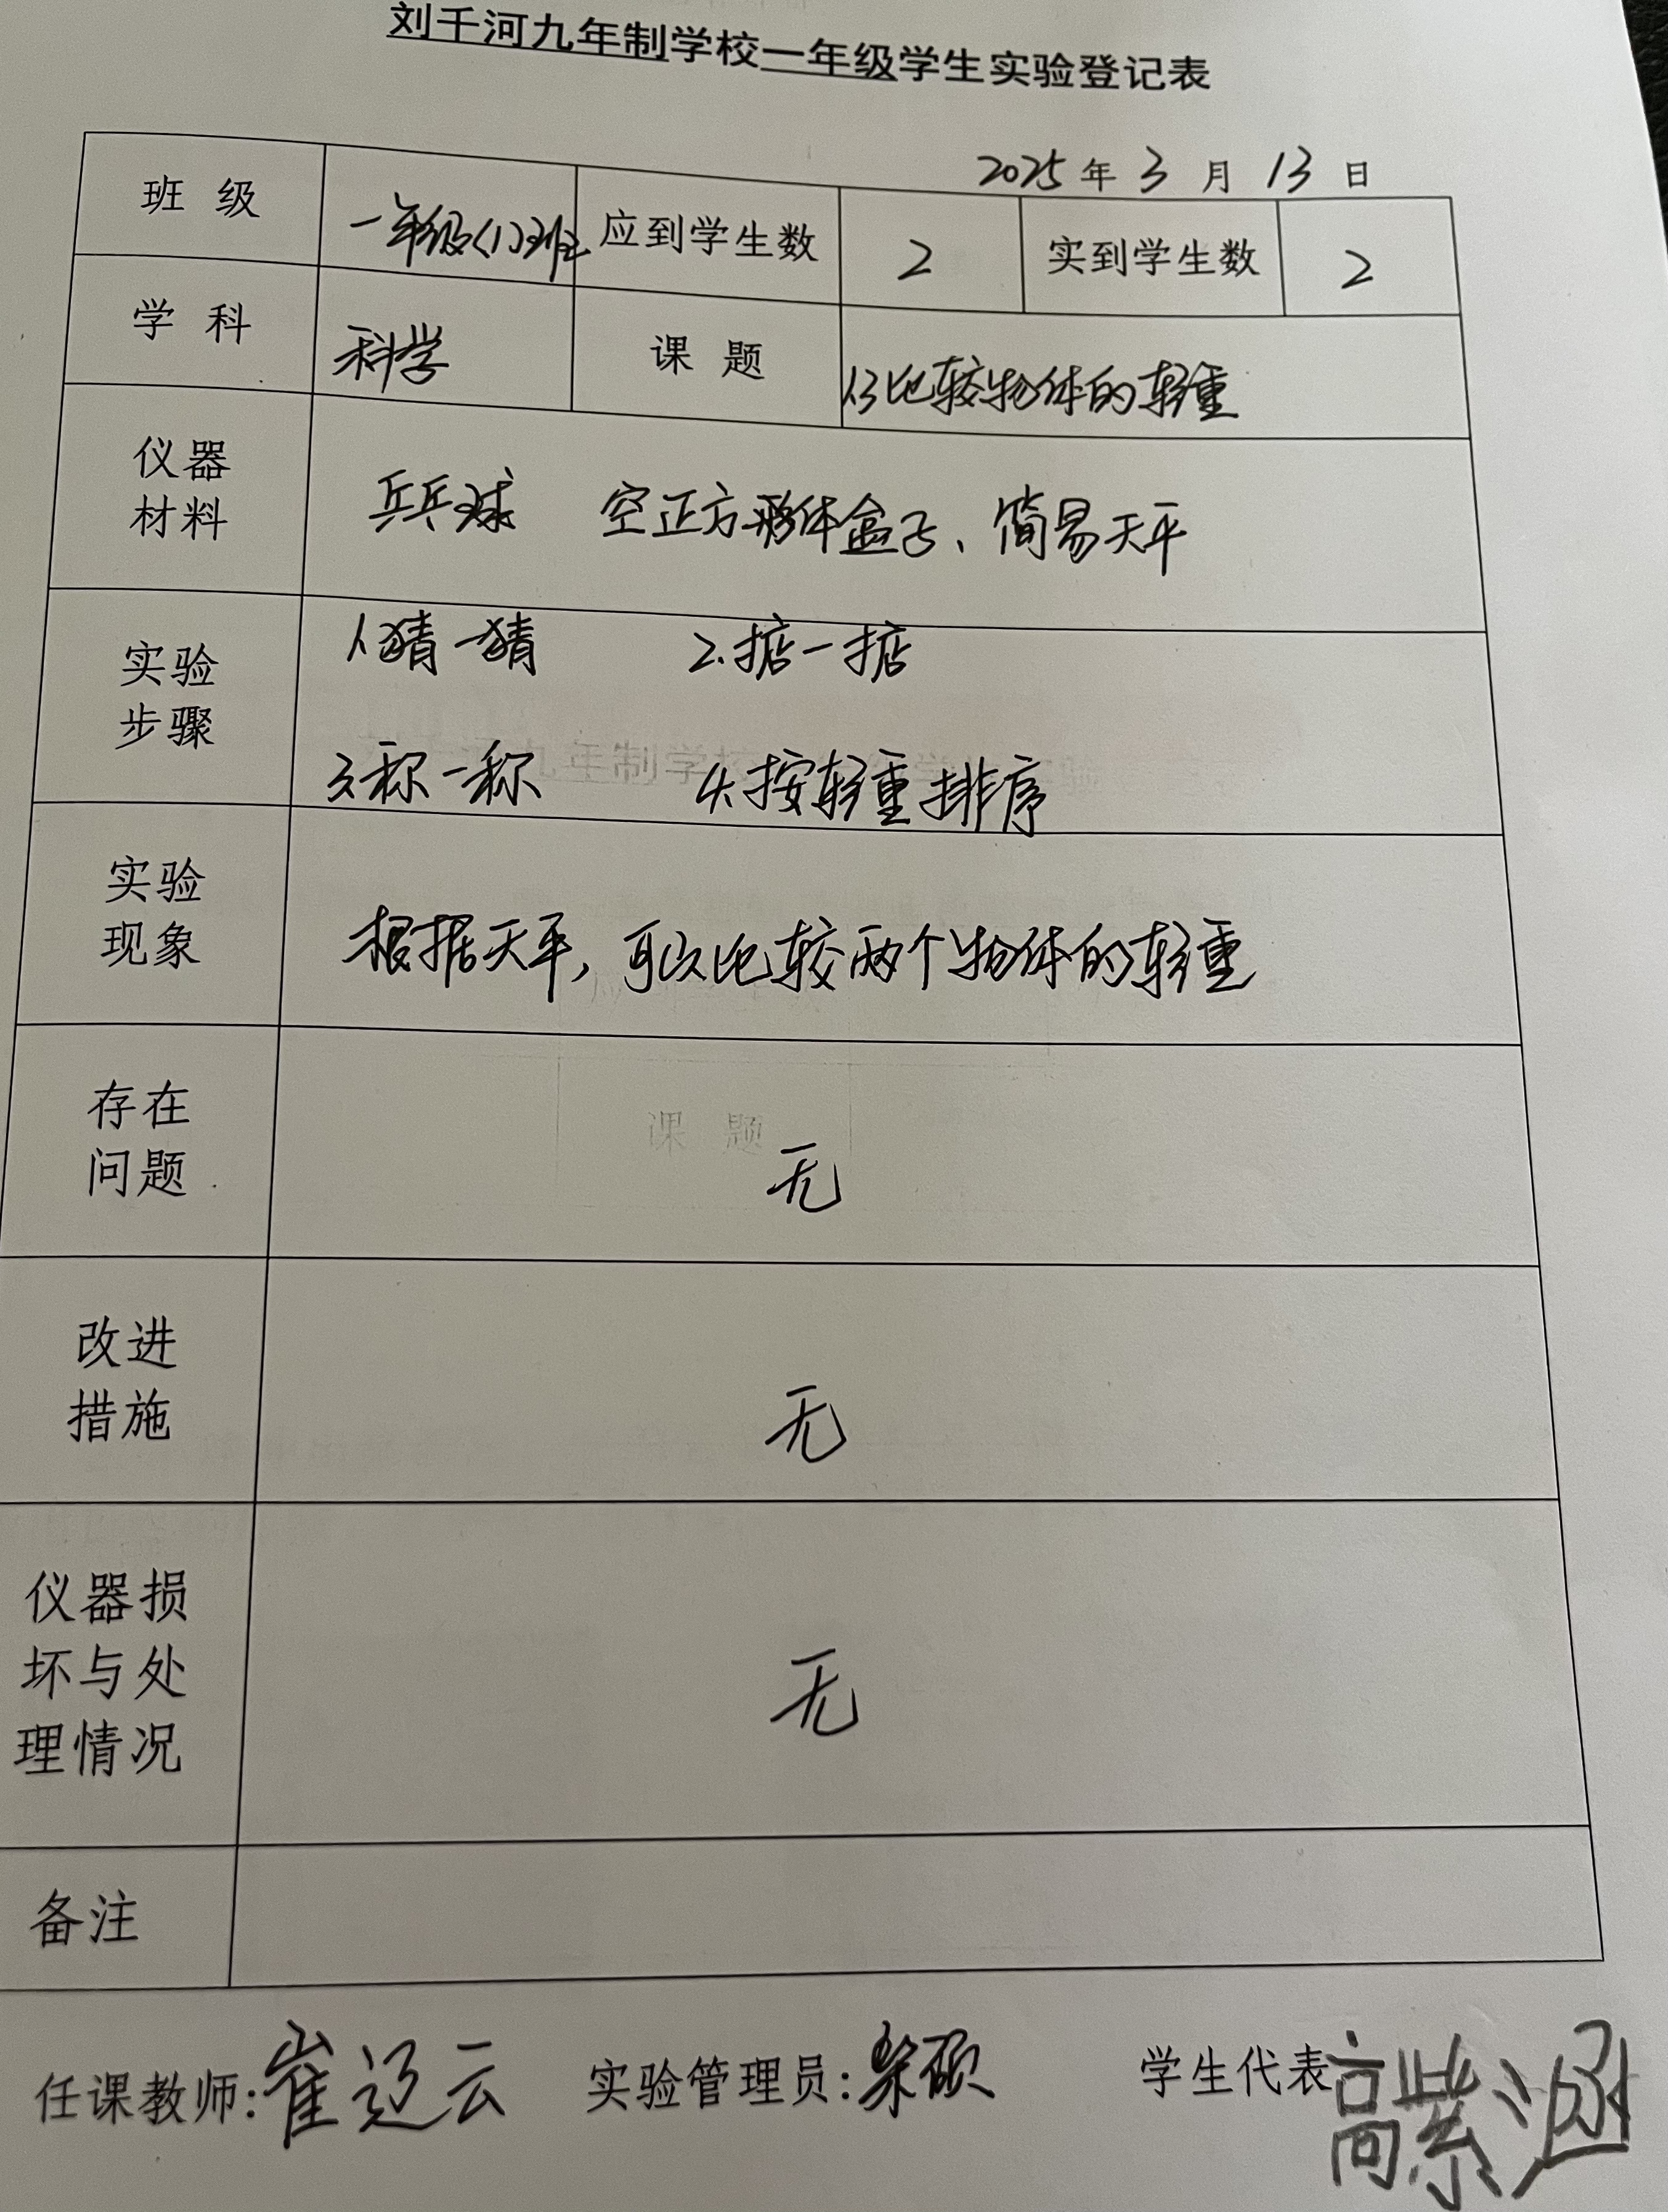 刘千河九年制学校一年级学生实验登记表
2025 年 3 月 13 日
班 级 一年级(1)班 应到学生数 2 实到学生数 2
学 科 科学 课 题 1.3比较物体的轻重
仪器
材料
兵兵球 空正方形体盒子、简易天平
实验
步骤
1.猜一猜 2.掂一掂
3.称一称 4.按轻重排序
实验
现象
根据天平,可以比较两个物体的轻重
课 题
存在
问题
无
改进
措施
无
仪器损
坏与处
理情况
无
备注
任课教师:崔迎云 实验管理员: 学生代表 高紫涵